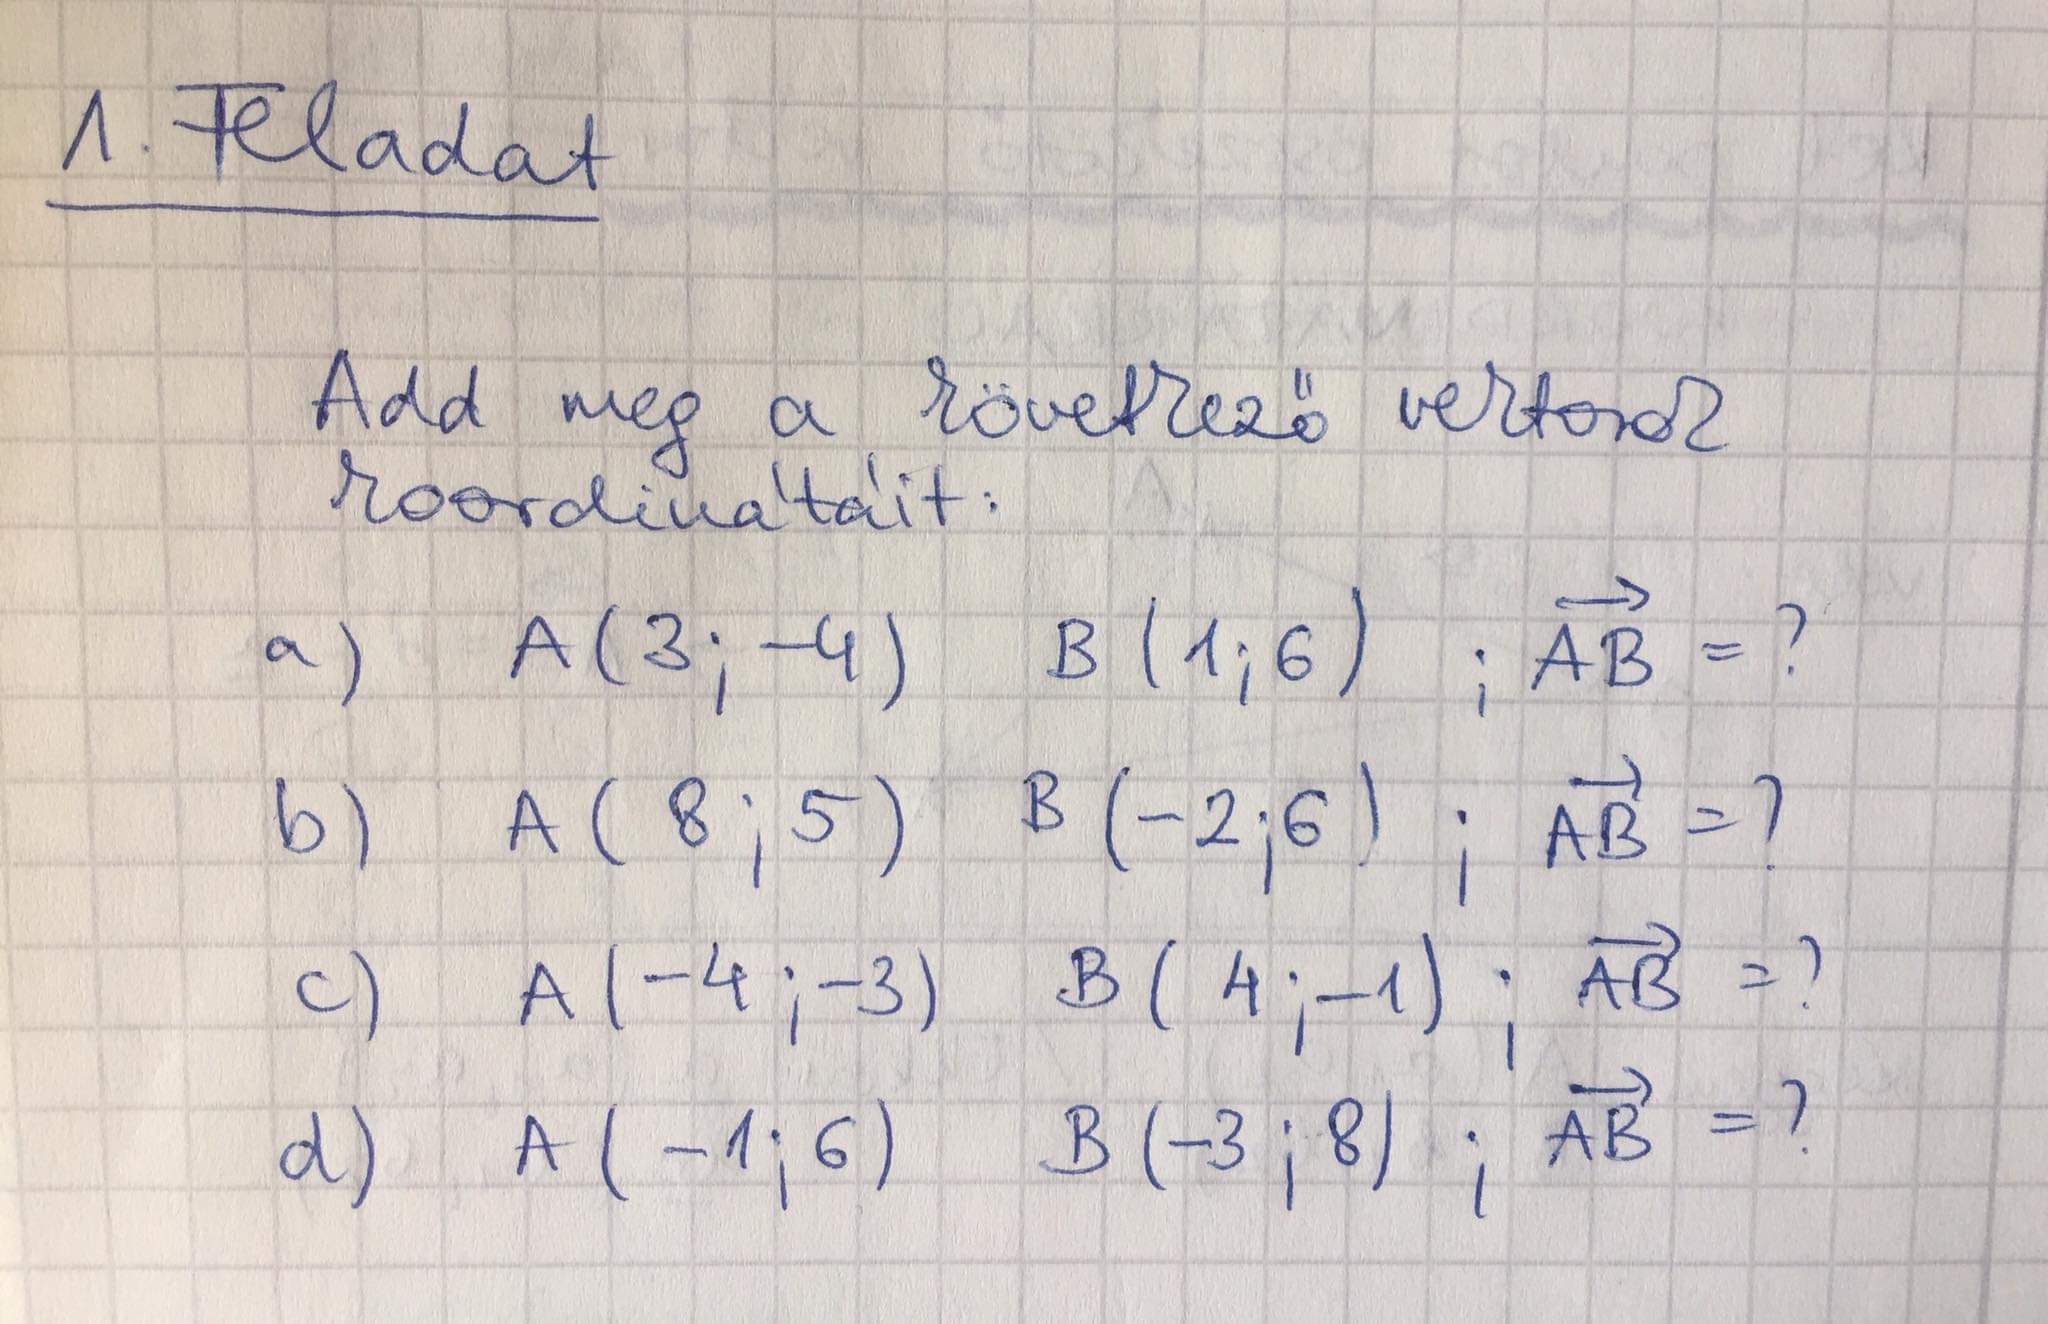 1. Feladat
Add meg a következő vektorok
koordinátáit:
a) A(3;-4) B(1;6) ; \overrightarrow{AB} = ?
b) A(8;5) B(-2;6) ; \overrightarrow{AB} = ?
c) A(-4;-3) B(4;-1) ; \overrightarrow{AB} = ?
d) A(-1;6) B(-3;8) ; \overrightarrow{AB} = ?